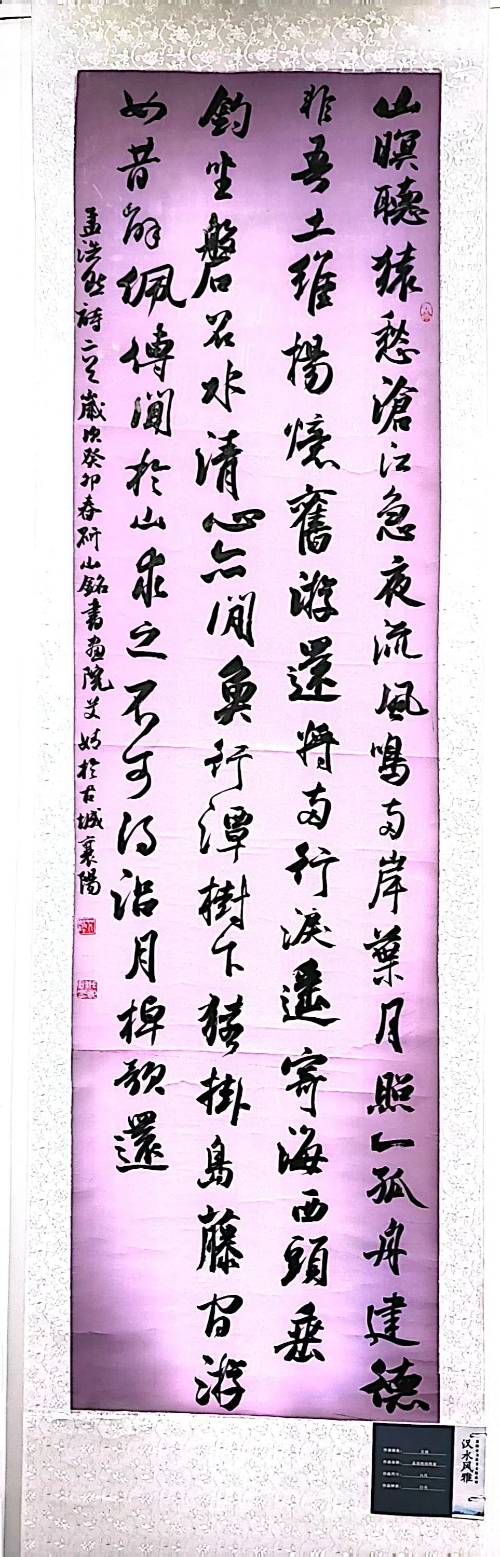 山暝聽猿愁滄江急夜流風鳴兩岸葉月照一孤舟建德
非吾土維揚憶舊游還將兩行淚遙寄海西頭垂
釣坐磐石水清心亦閑魚行潭樹下猿掛島藤間游
女昔解佩傳聞於山求之不可得沿月棹歌還
孟浩然詩二首歲次癸卯春研山銘書畫院艾於古城襄陽
汉水风雅